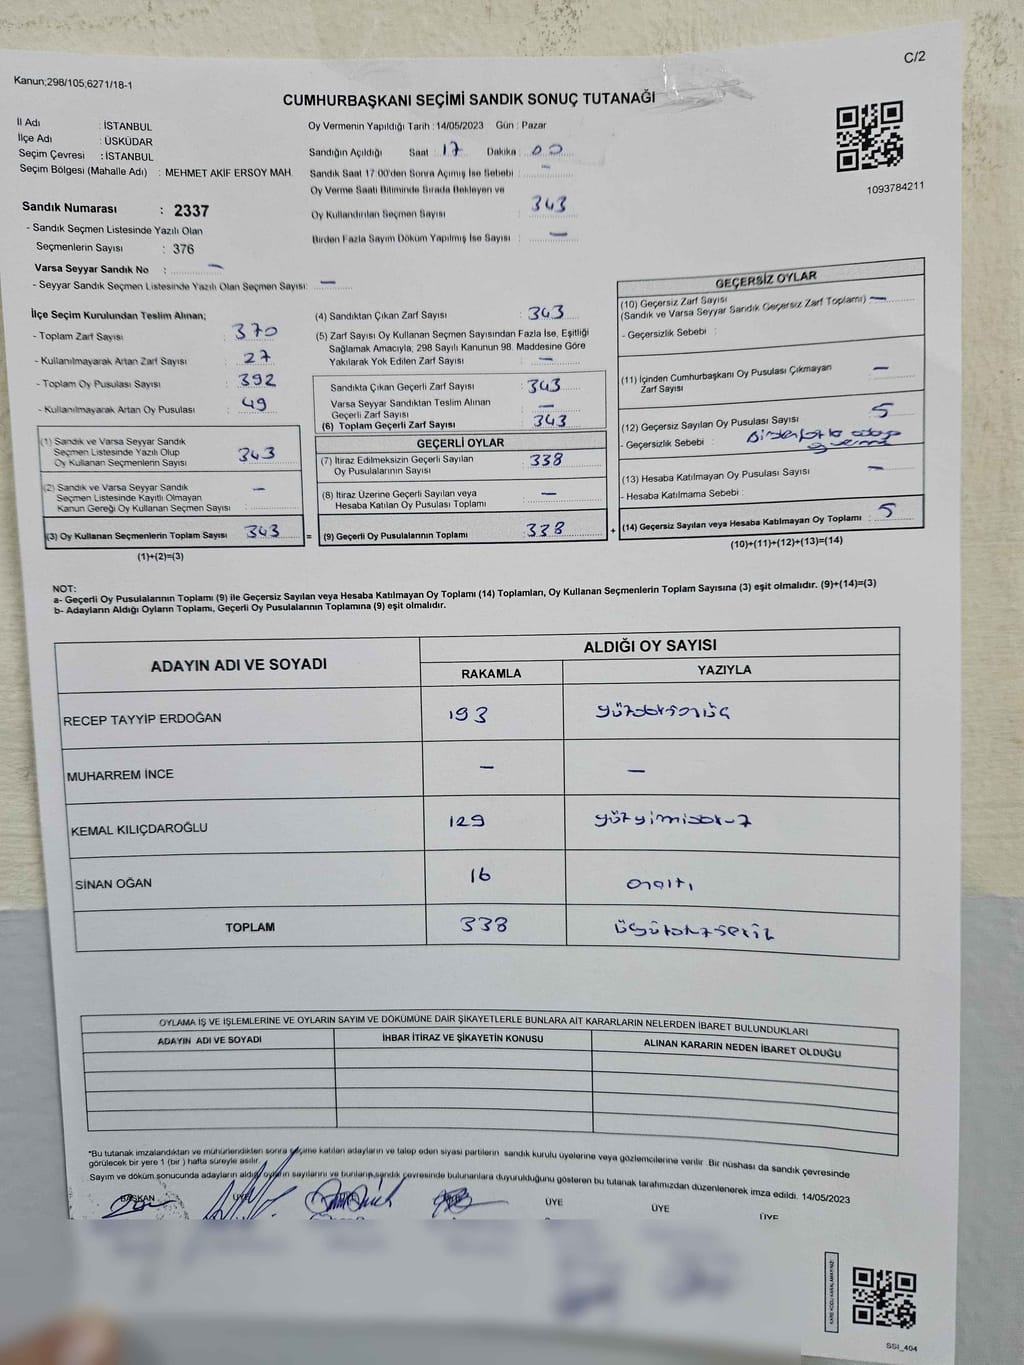 C/2
Kanun;298/105,6271/18-1
CUMHURBAŞKANI SEÇİMİ SANDIK SONUÇ TUTANAĞI
İl Adı : İSTANBUL
İlçe Adı : ÜSKÜDAR
Seçim Çevresi : İSTANBUL
Seçim Bölgesi (Mahalle Adı) : MEHMET AKİF ERSOY MAH.
Sandık Numarası : 2337
- Sandık Seçmen Listesinde Yazılı Olan
Seçmenlerin Sayısı : 376
Varsa Seyyar Sandık No : —
- Seyyar Sandık Seçmen Listesinde Yazılı Olan Seçmen Sayısı: —
Oy Vermenin Yapıldığı Tarih : 14/05/2023 Gün : Pazar
Sandığın Açıldığı Saat : 17 Dakika : 00
Sandık Saat 17:00'den Sonra Açımış İse Sebebi : —
Oy Verme Saati Bitiminde Sırada Bekleyen ve
Oy Kullandırılan Seçmen Sayısı : 343
Birden Fazla Sayım Döküm Yapılmış İse Sayısı : —
1093784211
İlçe Seçim Kurulundan Teslim Alınan;
- Toplam Zarf Sayısı : 370
- Kullanılmayarak Artan Zarf Sayısı : 27
- Toplam Oy Pusulası Sayısı : 392
- Kullanılmayarak Artan Oy Pusulası : 49
(1) Sandık ve Varsa Seyyar Sandık
Seçmen Listesinde Yazılı Olup
Oy Kullanan Seçmenlerin Sayısı : 343
(2) Sandık ve Varsa Seyyar Sandık
Seçmen Listesinde Kayıtlı Olmayan
Kanun Gereği Oy Kullanan Seçmen Sayısı : —
(3) Oy Kullanan Seçmenlerin Toplam Sayısı : 343 =
(1)+(2)=(3)
(4) Sandıktan Çıkan Zarf Sayısı : 343
(5) Zarf Sayısı Oy Kullanan Seçmen Sayısından Fazla İse, Eşitliği
Sağlamak Amacıyla, 298 Sayılı Kanunun 98. Maddesine Göre
Yakılarak Yok Edilen Zarf Sayısı : —
Sandıkta Çıkan Geçerli Zarf Sayısı : 343
Varsa Seyyar Sandıktan Teslim Alınan
Geçerli Zarf Sayısı : —
(6) Toplam Geçerli Zarf Sayısı : 343
GEÇERLİ OYLAR
(7) İtiraz Edilmeksizin Geçerli Sayılan
Oy Pusulalarının Sayısı : 338
(8) İtiraz Üzerine Geçerli Sayılan veya
Hesaba Katılan Oy Pusulası Toplamı : —
(9) Geçerli Oy Pusulalarının Toplamı : 338 +
GEÇERSİZ OYLAR
(10) Geçersiz Zarf Sayısı
(Sandık ve Varsa Seyyar Sandık Geçersiz Zarf Toplamı) : —
- Geçersizlik Sebebi :
(11) İçinden Cumhurbaşkanı Oy Pusulası Çıkmayan
Zarf Sayısı : —
(12) Geçersiz Sayılan Oy Pusulası Sayısı : 5
- Geçersizlik Sebebi : Birden fazla adaya
(13) Hesaba Katılmayan Oy Pusulası Sayısı : —
- Hesaba Katılmama Sebebi :
(14) Geçersiz Sayılan veya Hesaba Katılmayan Oy Toplamı : 5
(10)+(11)+(12)+(13)=(14)
NOT:
a- Geçerli Oy Pusulalarının Toplamı (9) ile Geçersiz Sayılan veya Hesaba Katılmayan Oy Toplamı (14) Toplamları, Oy Kullanan Seçmenlerin Toplam Sayısına (3) eşit olmalıdır. (9)+(14)=(3)
b- Adayların Aldığı Oyların Toplamı, Geçerli Oy Pusulalarının Toplamına (9) eşit olmalıdır.
ADAYIN ADI VE SOYADI ALDIĞI OY SAYISI
RAKAMLA YAZIYLA
RECEP TAYYİP ERDOĞAN 193 yüzdoksanüç
MUHARREM İNCE — —
KEMAL KILIÇDAROĞLU 129
SİNAN OĞAN 16 onaltı
TOPLAM 338
OYLAMA İŞ VE İŞLEMLERİNE VE OYLARIN SAYIM VE DÖKÜMÜNE DAİR ŞİKAYETLERLE BUNLARA AİT KARARLARIN NELERDEN İBARET BULUNDUKLARI
ADAYIN ADI VE SOYADI İHBAR İTİRAZ VE ŞİKAYETİN KONUSU ALINAN KARARIN NEDEN İBARET OLDUĞU
*Bu tutanak imzalandıktan ve mühürlendikten sonra seçime katılan adayların ve talep eden siyasi partilerin sandık kurulu üyelerine veya gözlemcilerine verilir. Bir nüshası da sandık çevresinde
görülecek bir yere 1 (bir) hafta süreyle asılır.
Sayım ve döküm sonucunda adayların aldığı oyların sayılarını ve bunların sandık çevresinde bulunanlara duyurulduğunu gösteren bu tutanak tarafımızdan düzenlenerek imza edildi. 14/05/2023
BAŞKAN ÜYE ÜYE ÜYE ÜYE
SSI_404